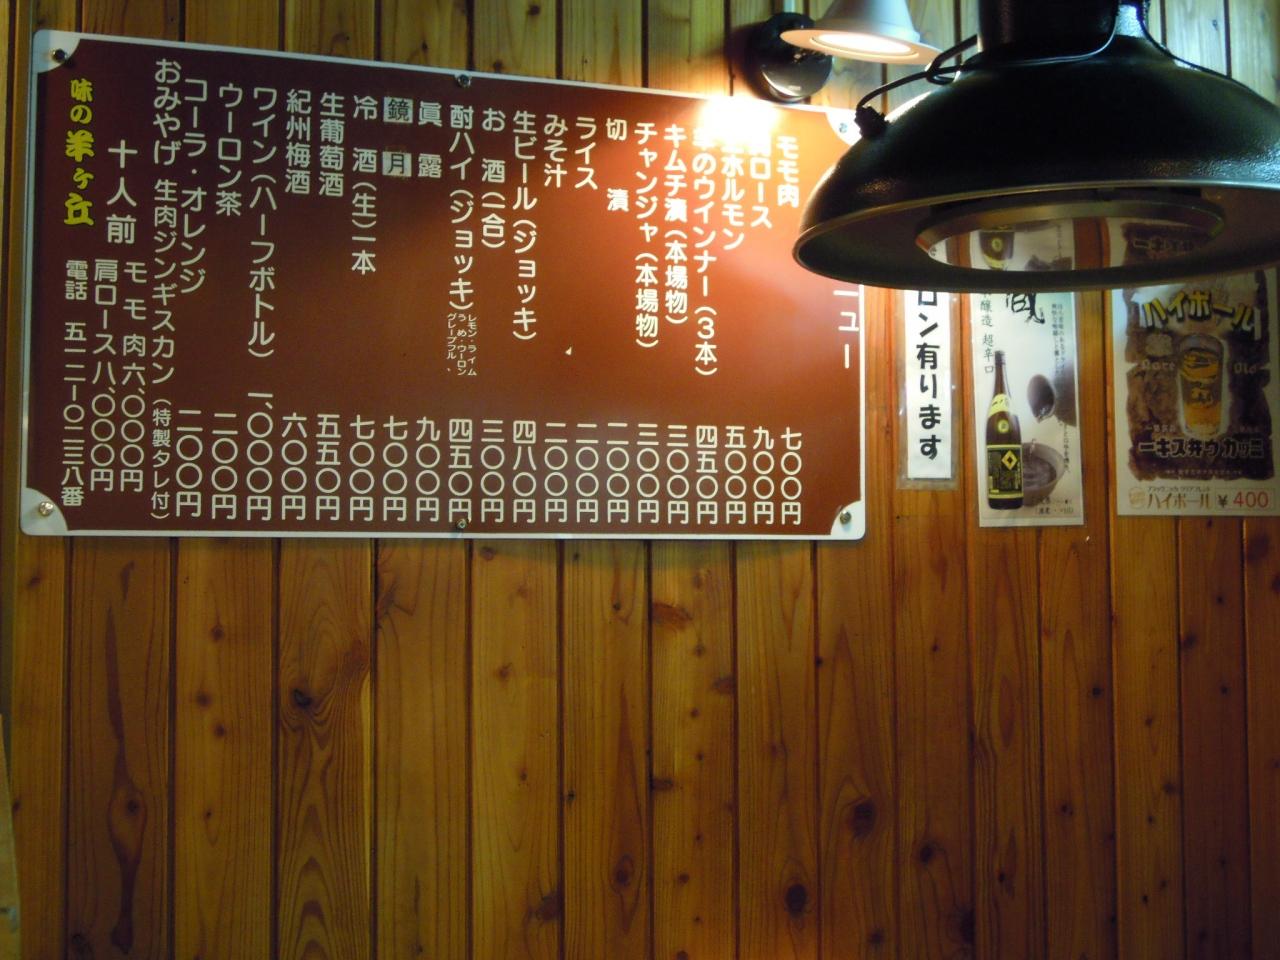 ニュー
モモ肉 七〇〇円
ロース 九〇〇円
ホルモン 五〇〇円
のウインナー(3本) 四五〇円
キムチ漬(本場物) 三〇〇円
チャンジャ(本場物) 三〇〇円
切漬 二〇〇円
ライス 二〇〇円
みそ汁 二〇〇円
生ビール(ジョッキ) 四八〇円
お酒(一合) 三〇〇円
酎ハイ(ジョッキ) レモン・ライム うめ・ウーロン グレープフル、 四五〇円
眞露 九〇〇円
鏡月 七〇〇円
冷酒(生)一本 七〇〇円
生葡萄酒 五五〇円
紀州梅酒 六〇〇円
ワイン(ハーフボトル) 一、〇〇〇円
ウーロン茶 二〇〇円
コーラ・オレンジ 二〇〇円
おみやげ 生肉ジンギスカン(特製タレ付)
十人前 モモ肉六、〇〇〇円
肩ロース八、〇〇〇円
味の羊ヶ丘 電話 五一二-〇二三八番
ロン有ります
蔵
醸造 超辛口
ハイボール
ハイボール ¥400